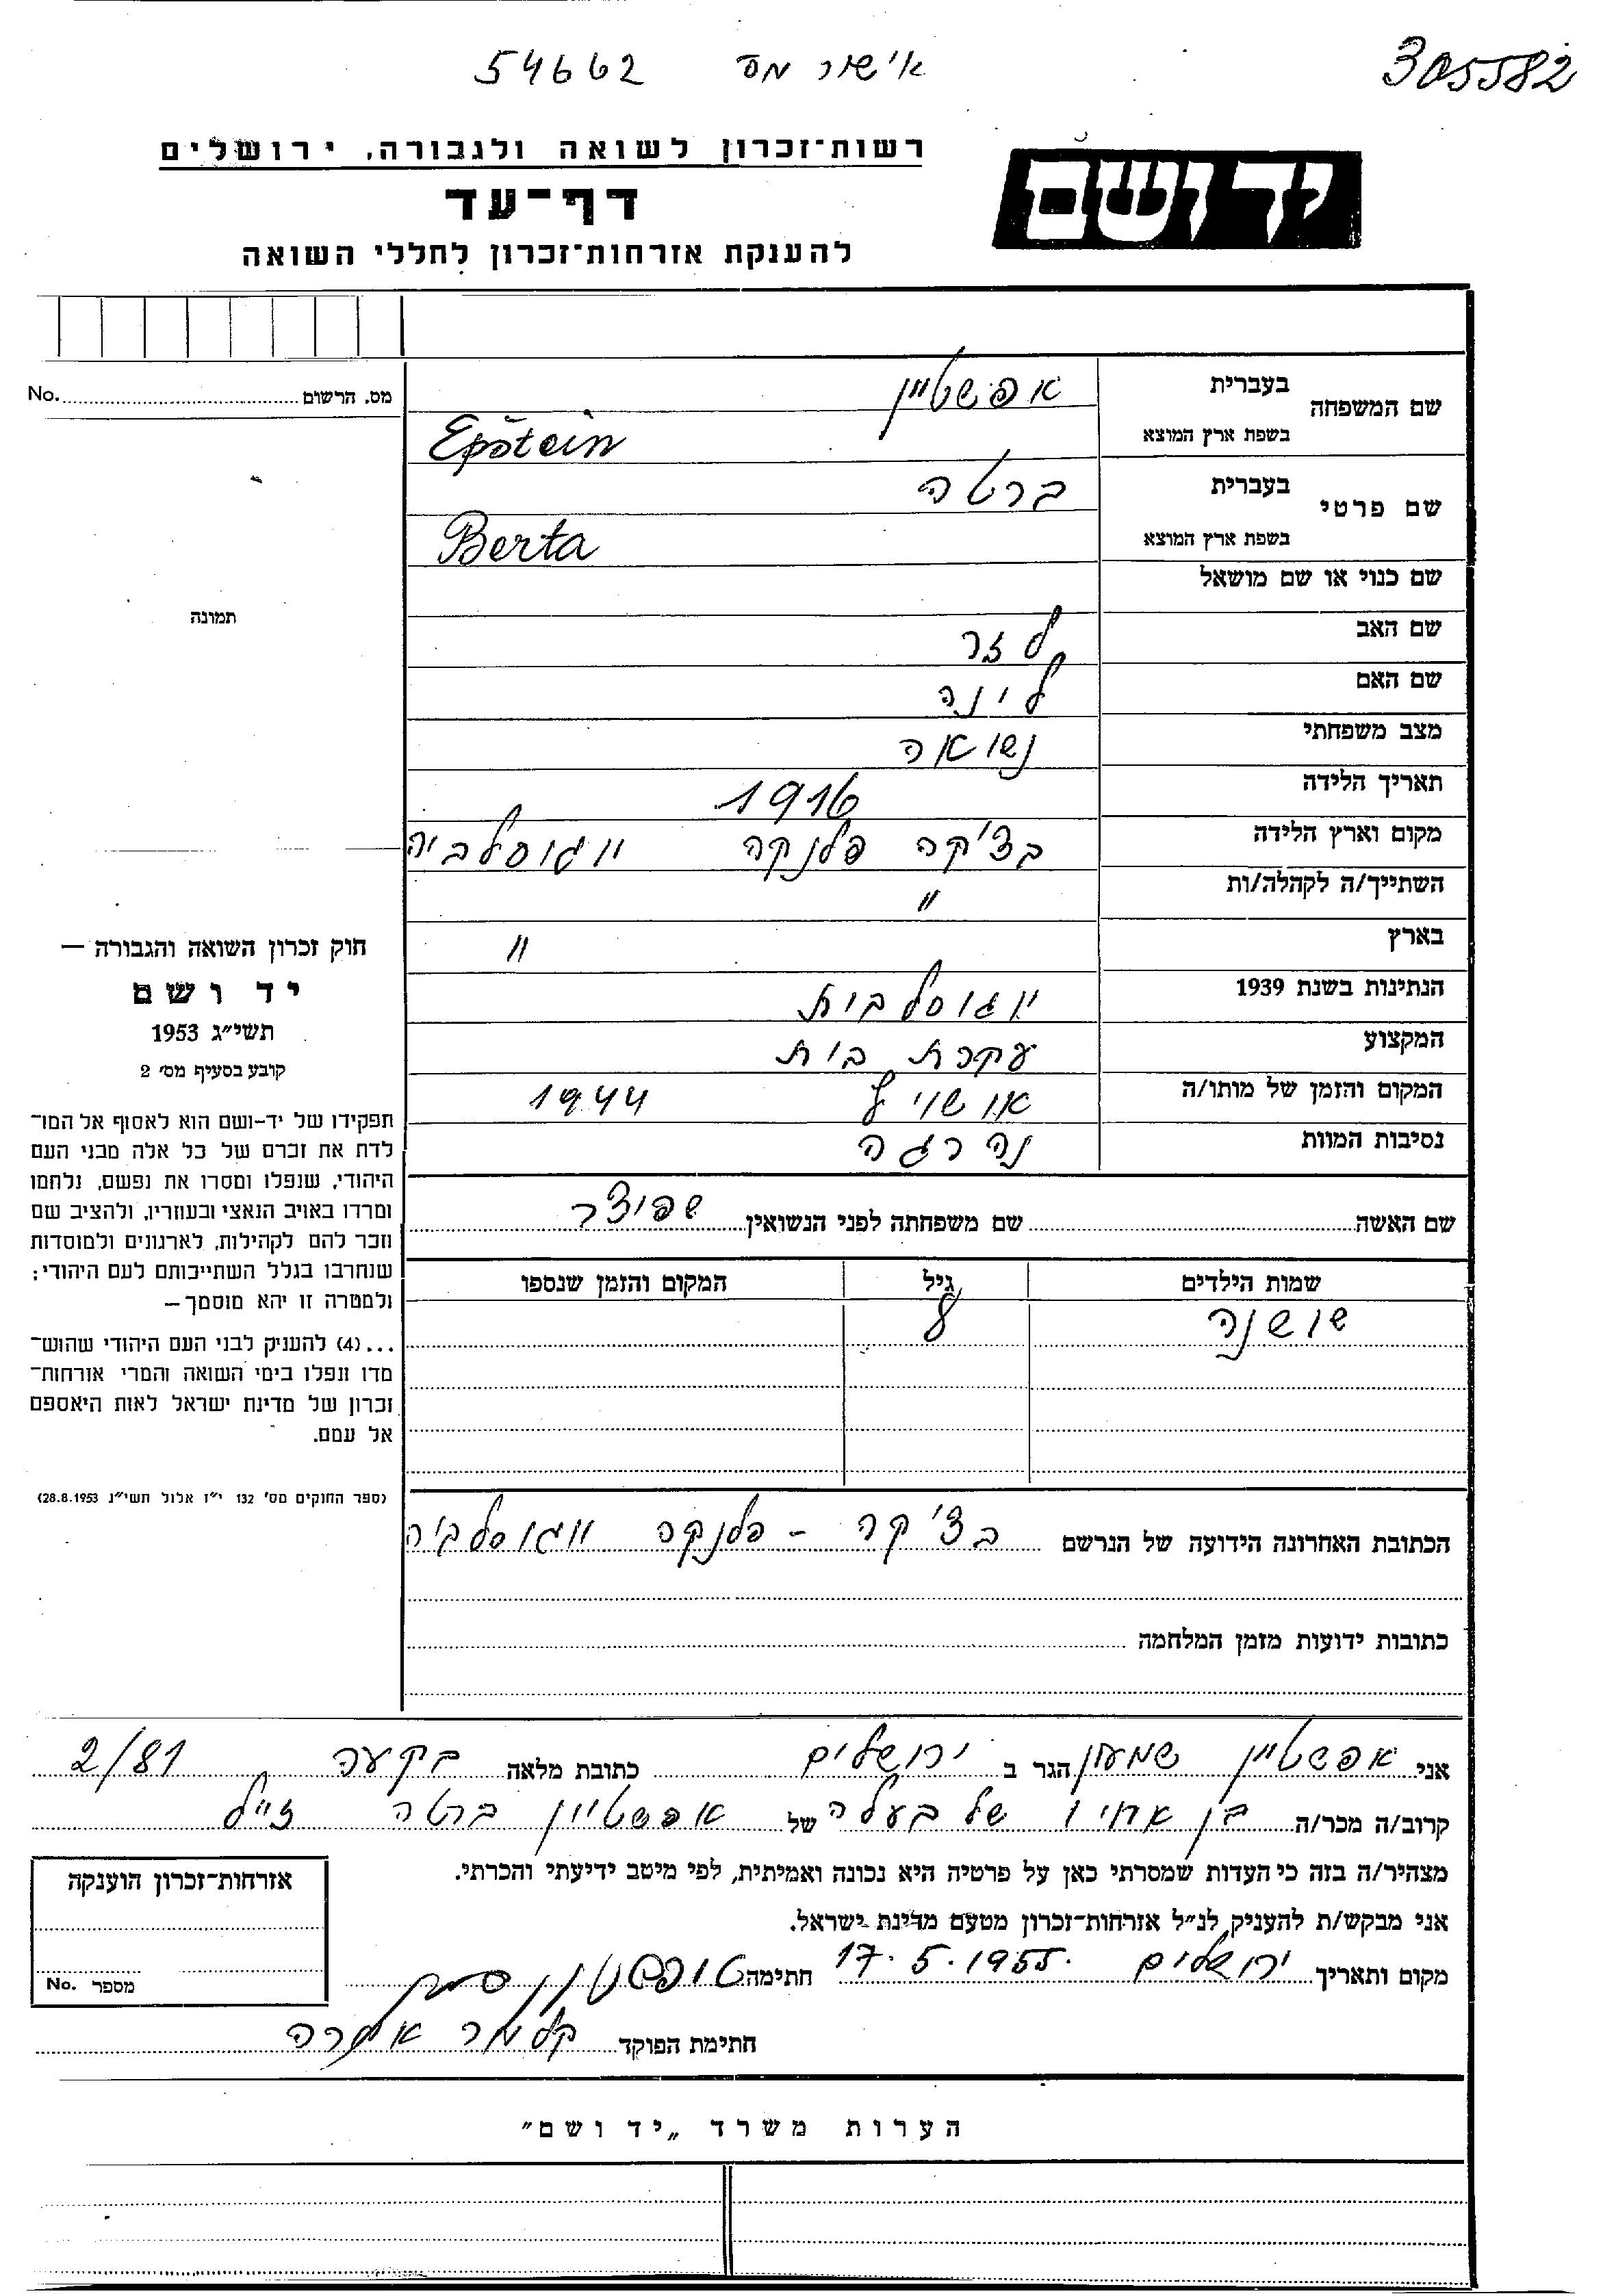 305582
אישור מס 54662
יד ושם
רשות־זכרון לשואה ולגבורה, ירושלים
דף־עד
להענקת אזרחות־זכרון לחללי השואה
מס. הרשום No.
שם המשפחה
בעברית אפשטיין
בשפת ארץ המוצא Epštein
שם פרטי
בעברית ברטה
בשפת ארץ המוצא Berta
שם כנוי או שם מושאל
תמונה
שם האב לזר
שם האם לינה
מצב משפחתי נשואה
תאריך הלידה 1916
מקום וארץ הלידה בצ'קה פלנקה יוגוסלביה
השתייך/ה לקהלה/ות "
בארץ "
הנתינות בשנת 1939 יוגוסלבית
המקצוע עקרת בית
המקום והזמן של מותו/ה אושויץ 1944
נסיבות המוות נהרגה
שם האשה שם משפחתה לפני הנשואין שפיצר
שמות הילדים גיל המקום והזמן שנספו
שושנה
חוק זכרון השואה והגבורה —
יד ושם
תשי״ג 1953
קובע בסעיף מס׳ 2
תפקידו של יד-ושם הוא לאסוף אל המו־
לדת את זכרם של כל אלה מבני העם
היהודי, שנפלו ומסרו את נפשם, נלחמו
ומרדו באויב הנאצי ובעוזריו, ולהציב שם
וזכר להם לקהילות, לארגונים ולמוסדות
שנחרבו בגלל השתייכותם לעם היהודי;
ולמטרה זו יהא מוסמך —
...(4) להעניק לבני העם היהודי שהוש־
מדו ונפלו בימי השואה והמרי אזרחות־
זכרון של מדינת ישראל לאות היאספם
אל עמם.
(ספר החוקים מס׳ 132 י״ז אלול תשי״ג 28.8.1953)
הכתובת האחרונה הידועה של הנרשם בצ'קה - פלנקה יוגוסלביה
כתובות ידועות מזמן המלחמה
אני אפשטיין שמעון הגר ב ירושלים כתובת מלאה בקעה 2/81
קרוב/ה מכר/ה בן אחיו של בעלה של אפשטיין ברטה ז"ל
מצהיר/ה בזה כי העדות שמסרתי כאן על פרטיה היא נכונה ואמיתית, לפי מיטב ידיעתי והכרתי.
אני מבקש/ת להעניק לנ״ל אזרחות־זכרון מטעם מדינת ישראל.
מקום ותאריך ירושלים 17.5.1955 חתימה
חתימת הפוקד
אזרחות־זכרון הוענקה
מספר No.
הערות משרד „יד ושם"